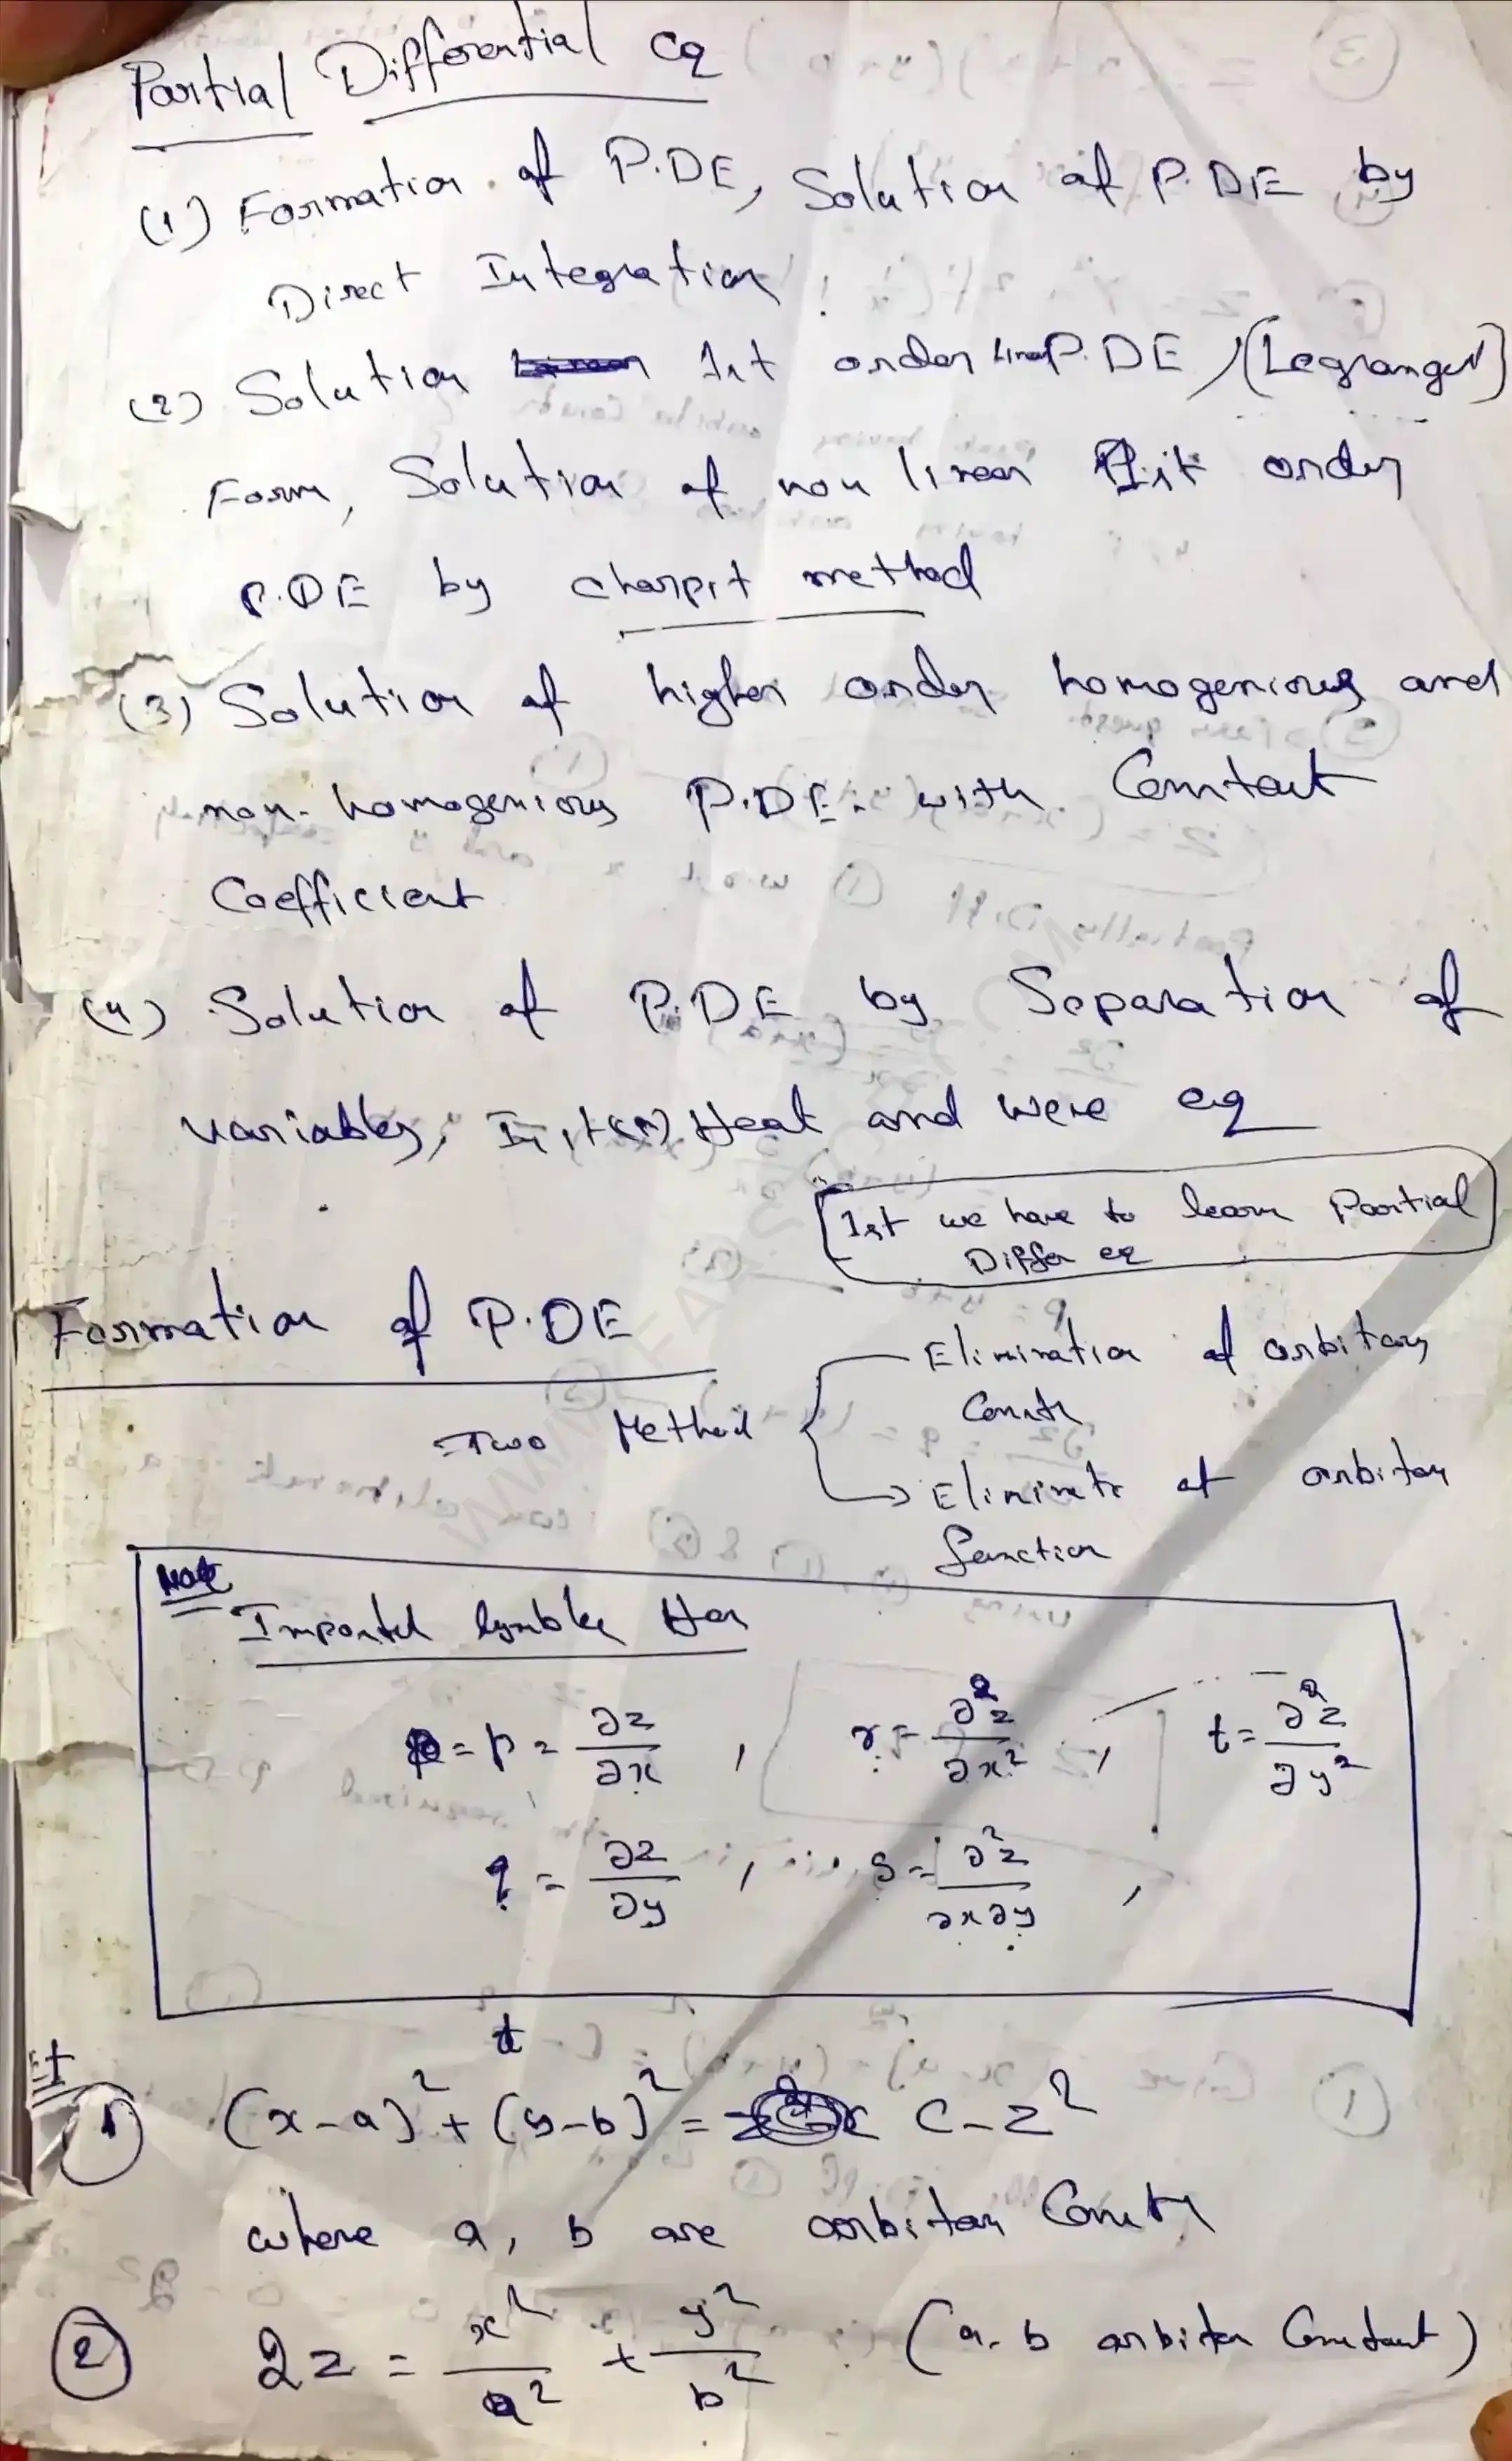 Partial Differential eq
(1) Formation of P.DE, Solution of P.DE by
Direct Integration
(2) Solution 1st order Linear P.DE, (Legranges)
Form, Solution of non linear First order
P.DE by charpit method
(3) Solution of higher order homogenious and
non-homogenious P.DE. with Constant
Coefficient
(4) Solution of P.DE by Separation of
variables, Heat and were eq
1st we have to learn Partial
Differ eq
Formation of P.DE
Elimination of arbitary
Constn
=Two Method
→ Eliminate of arbitary
function
Note
Important Symbles Her
= p = ∂z/∂x , r = ∂²z/∂x² , t = ∂²z/∂y²
q = ∂z/∂y , s = ∂²z/∂x∂y ,
(1) (x-a)² + (y-b)² = C-z²
where a, b are arbitary Constn
(2) 2z = x²/a² + y²/b² (a. b arbitar Constant)